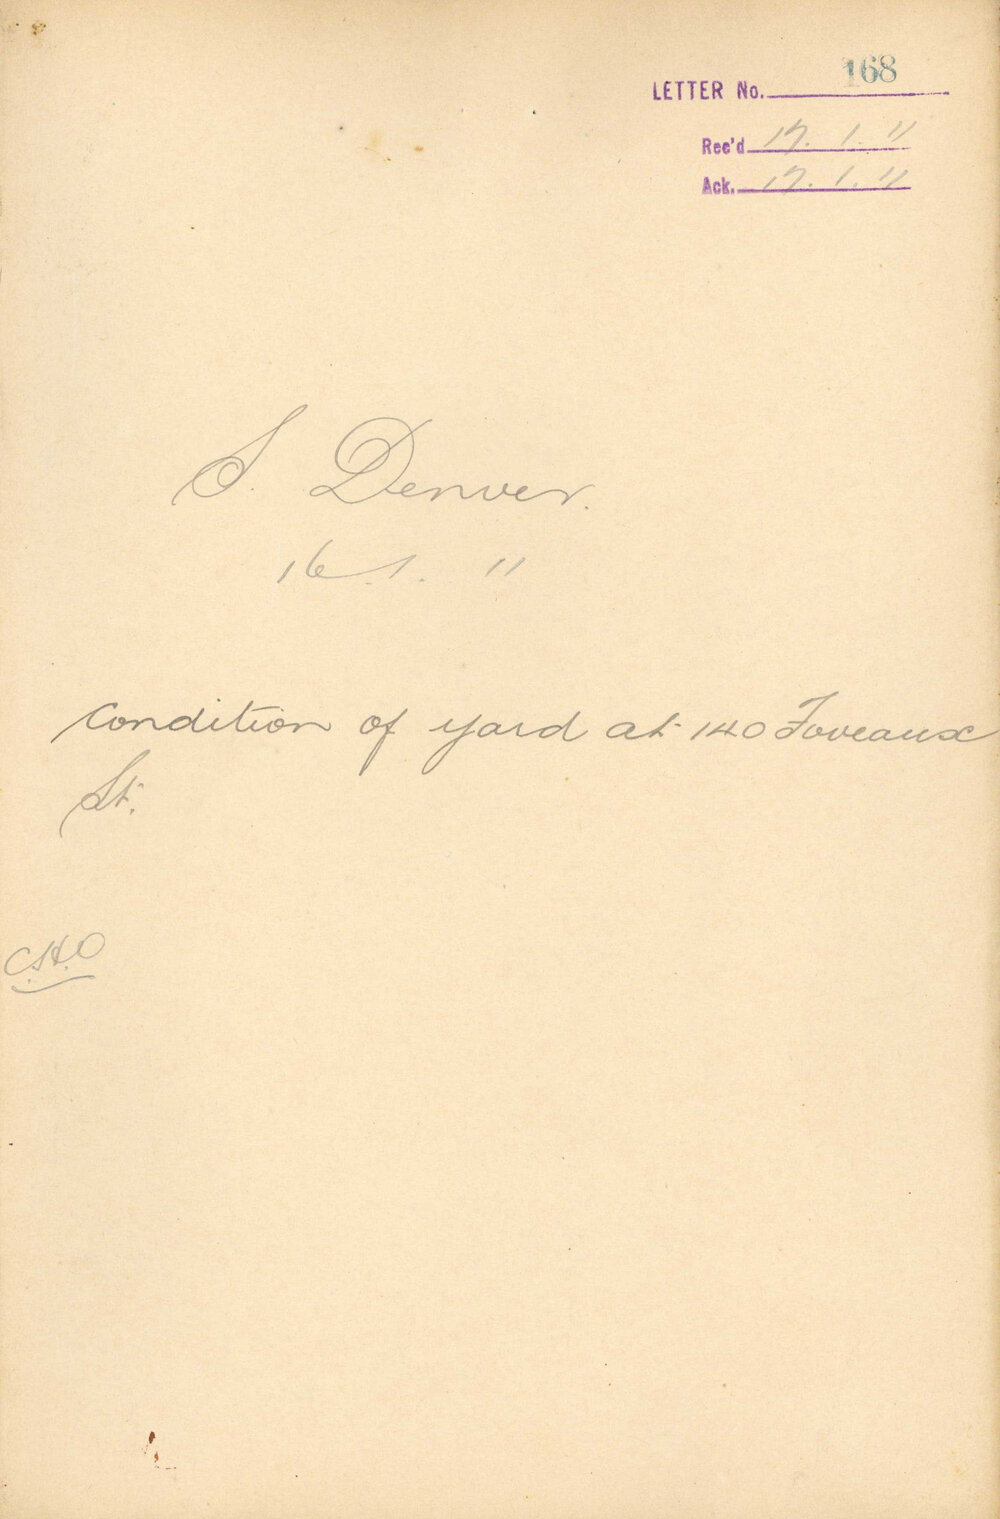 LETTER No. 168
Rec'd 17. 1. 11
Ack. 17. 1. 11
S. Denver.
16. 1. 11
Condition of yard at 140 Foveaux
St.
C.H.O